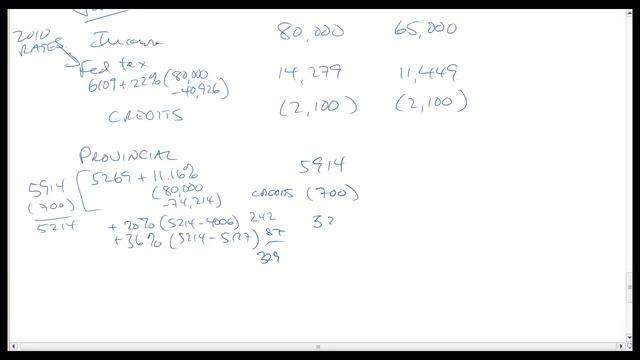 2010
RATES
Income 80,000 65,000
Fed tax 14,279 11,449
6109 + 22% (80,000
- 40,926)
CREDITS (2,100) (2,100)
PROVINCIAL
5269 + 11.16% 5914
(80,000
- 74,214)
5914
(700)
5214
CREDITS (700)
+ 20% (5214 - 4006) 242 32
+ 36% (5214 - 5127) 87
329